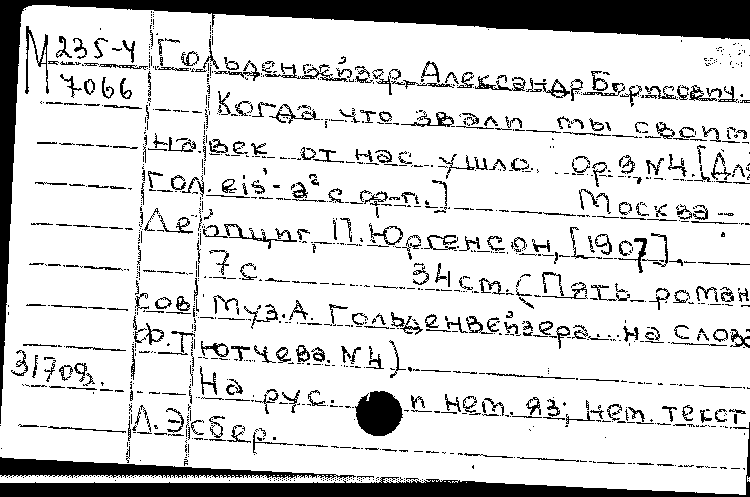 М 235-4 Гольденвейзер, Александр Борисович.
7066 Когда, что звали ты своим
навек от нас ушло. Ор. 9, N4. [Для
гол. eis¹-a² с ф-п.] Москва-
Лейпциг, П. Юргенсон, [1907].
7 с. 34 см. (Пять роман
сов Муз. А. Гольденвейзера... на слова
Ф. Тютчева. N4).
31708.
На рус. и нем. яз; нем. текст
Л. Эсбер.